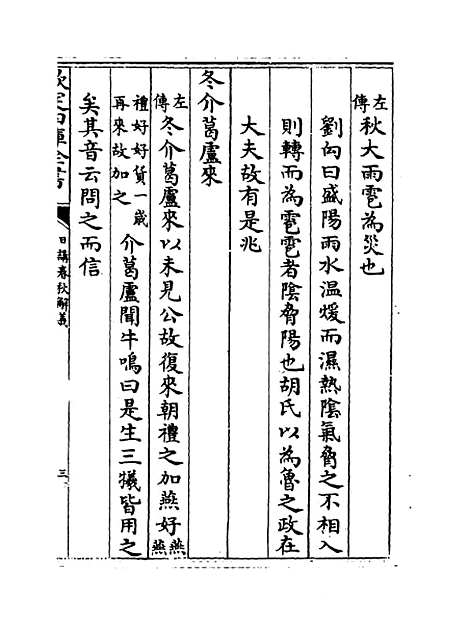 左傳秋大雨雹為災也
劉向曰盛陽雨水温煖而濕熱陰氣脅之不相入
則轉而為雹雹者陰脅陽也胡氏以為魯之政在
大夫故有是兆
冬介葛盧來
左傳冬介葛盧來以未見公故復來朝禮之加燕好燕燕
禮好好貨一歲再來故加之介葛盧聞牛鳴曰是生三犧皆用之
矣其音云問之而信
欽定四庫全書
日講春秋解義
三